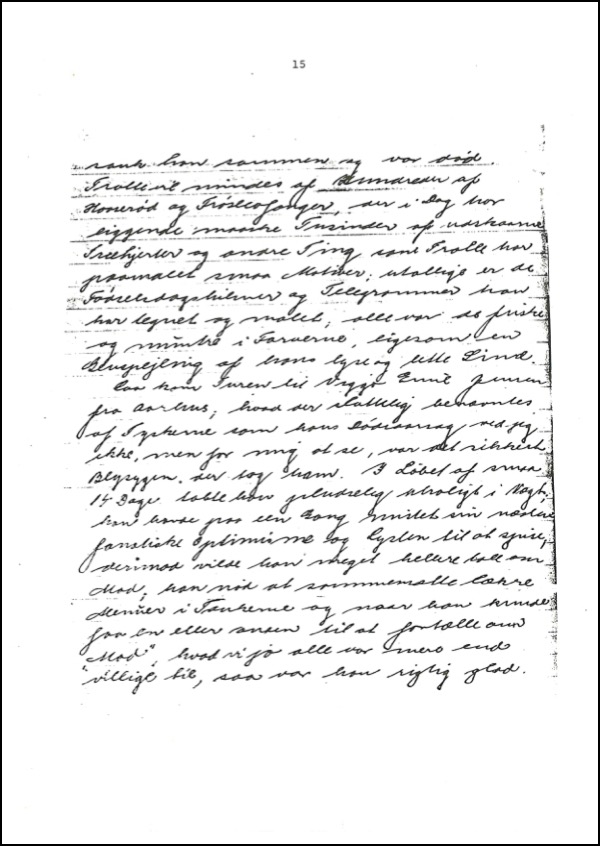 15
sank han sammen og var død.
Trolle vil mindes af Hundreder af
Horserød og Frøslevfanger, der i Dag har
liggende maaske Tusinder af udskaarne
Træhjerter og andre Ting som Trolle har
paamalet smaa Motiver; utallige er de
Fødselsdagshilsner og Telegrammer han
har tegnet og malet, alle var de friske
og muntre i Farverne, ligesom en
Genspejling af hans lyse og lette Sind.
Saa kom Turen til Viggo Emil Jensen
fra Aarhus; hvad der slutteligt benævntes
af Tyskerne som hans Dødsaarsag, ved jeg
ikke, men for mig at se, var det sikkert
Blysygen, der tog ham. I Løbet af smaa
14 Dage tabte han pludselig utroligt i Vægt,
han havde paa een Gang mistet sin næsten
fanatiske Optimisme og Lysten til at spise,
derimod vilde han meget hellere tale om
Mad, han nød at sammensætte lækre
Menuer i Tankerne og naar han kunde
faa en eller anden til at fortælle om
Mad", hvad vi jo alle var mere end
"villige til, saa var han rigtig glad.